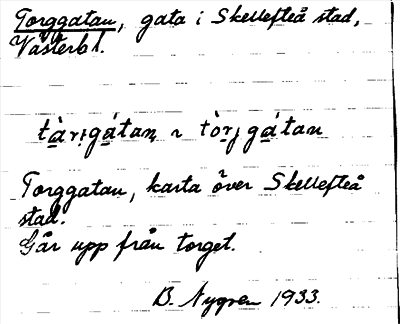 Torggatan, gata i Skellefteå stad,
Västerb l.
tàrı̣gátaṇ ~ tòr̠ȷ gátan
Torggatan, karta över Skellefteå
stad.
Går upp från torget.
B. Nygren 1933.